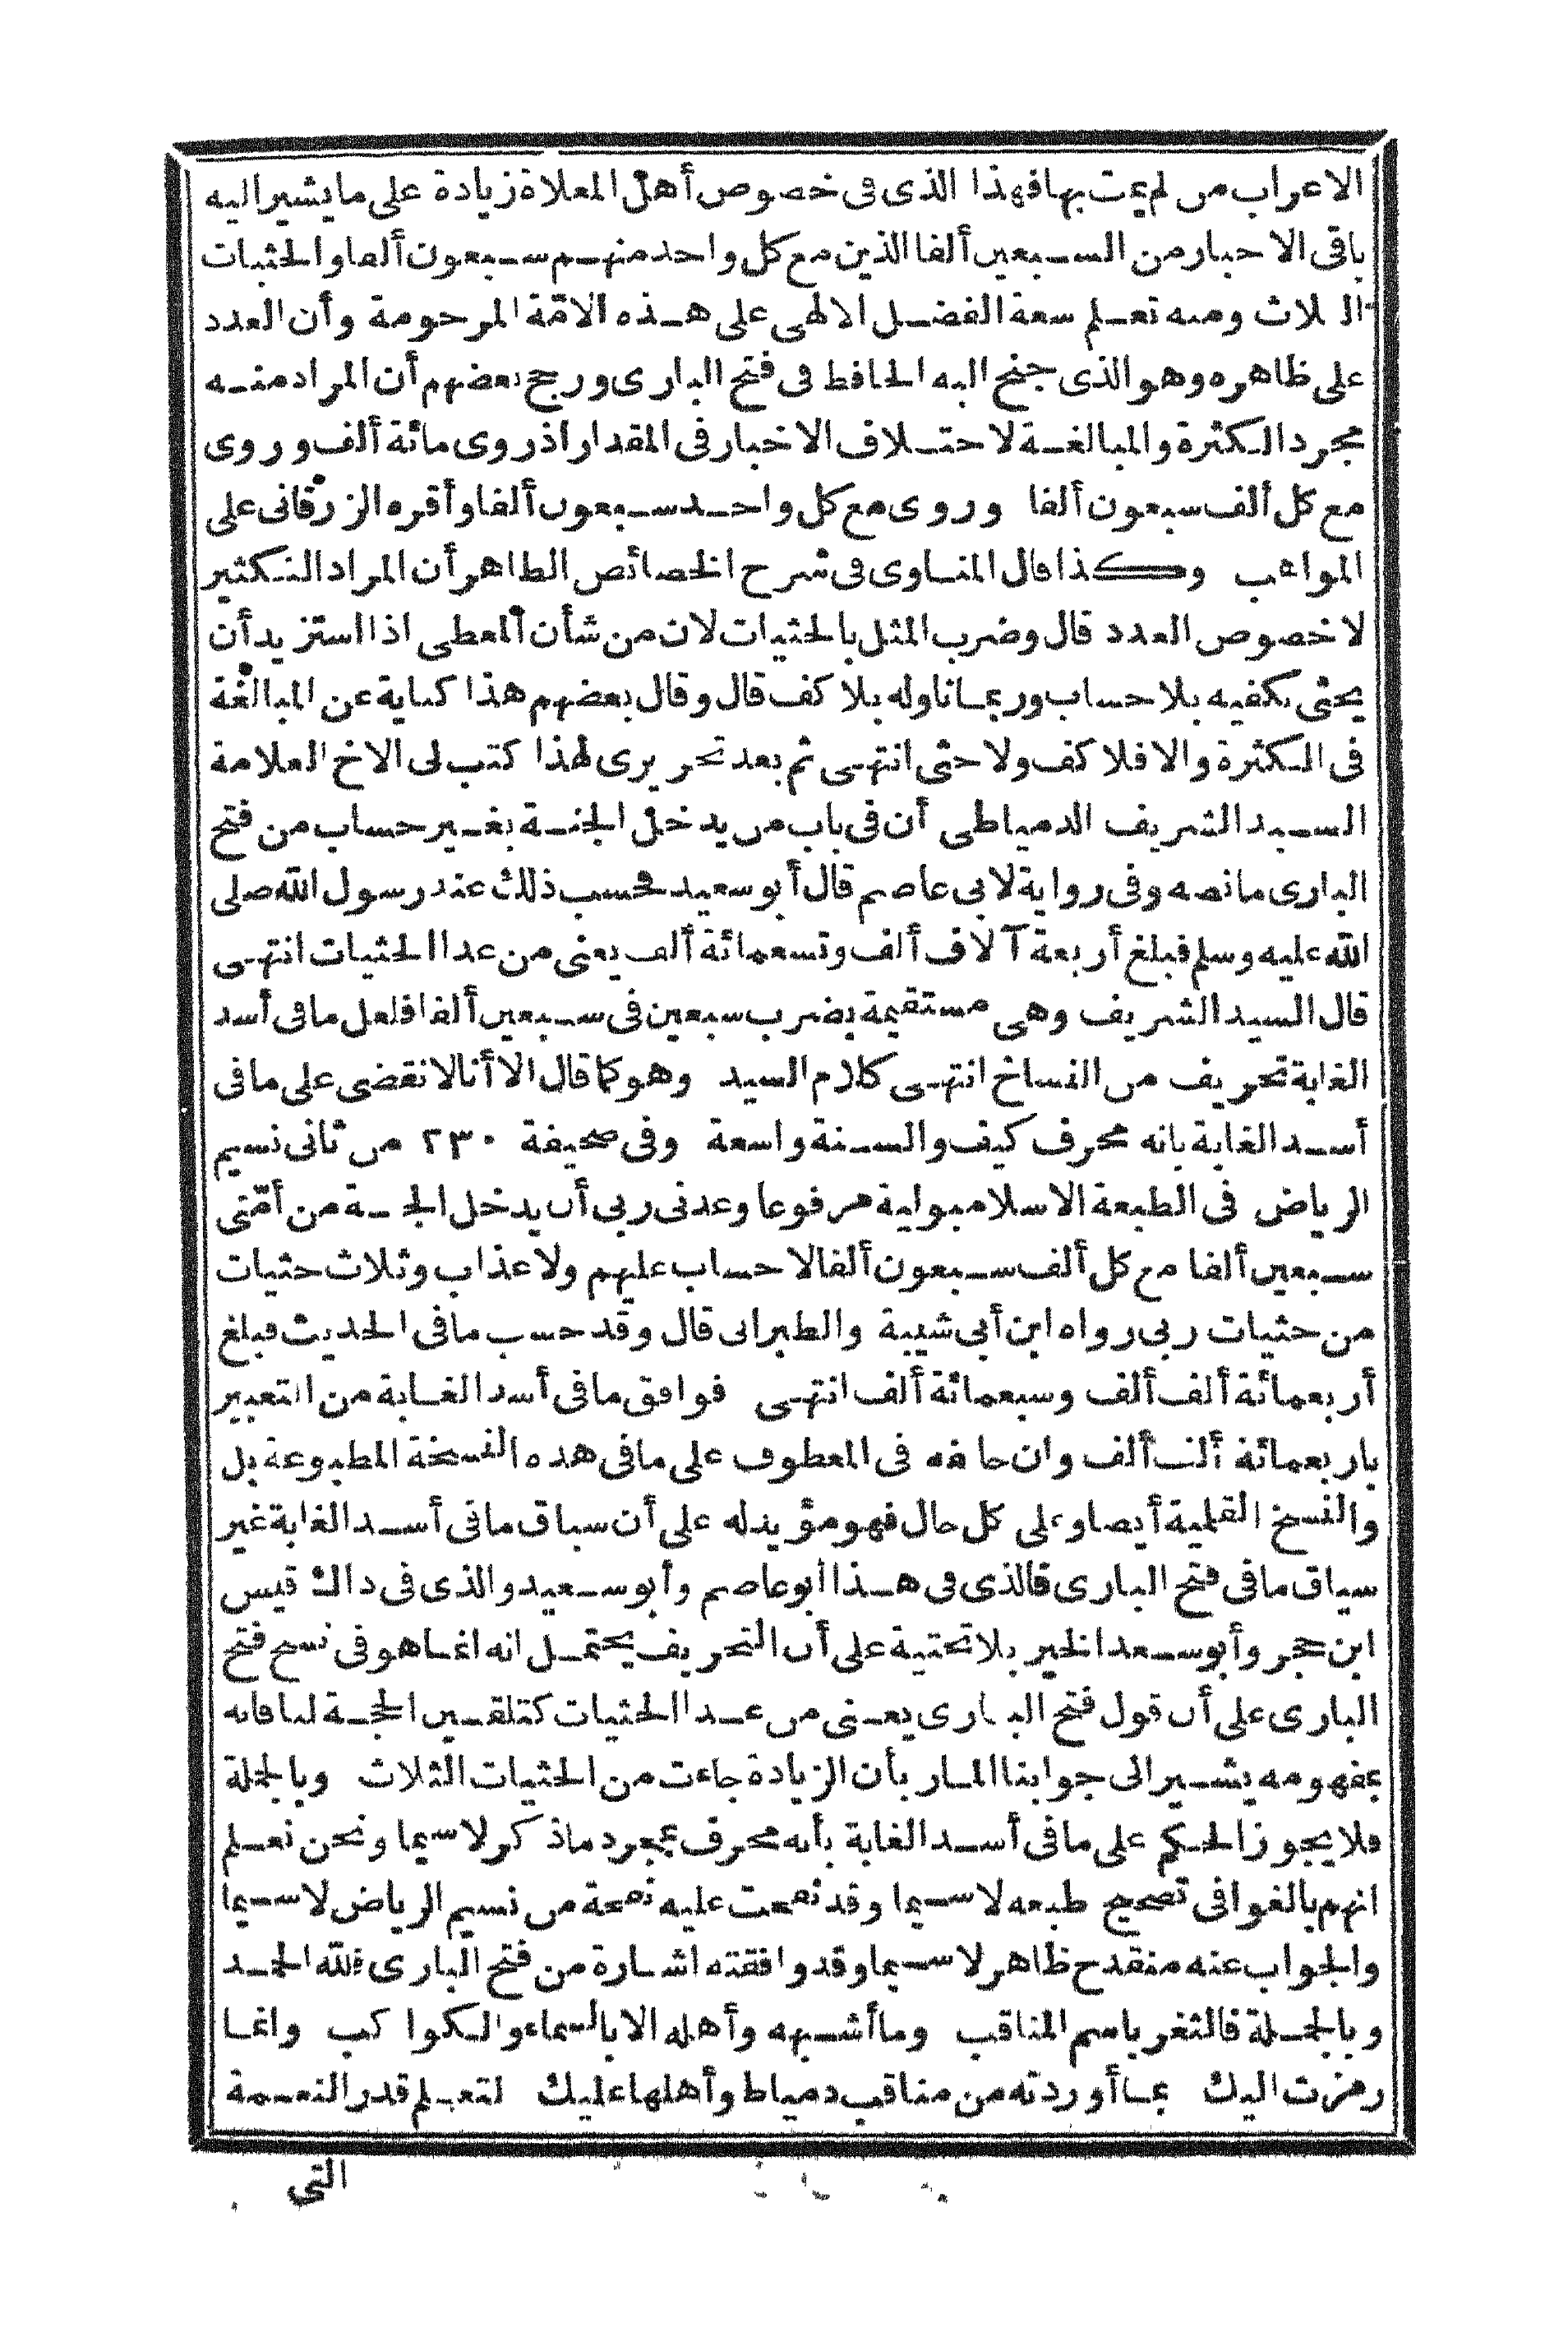 الاعراب من لم يمت بها فهذا الذى فى خصوص أهل المعلاة زيادة على ما يشير اليه
باقى الاخبار من السبعين ألفا الذين مع كل واحد منهم سبعون ألفا والحثيات
الثلاث ومنه تعلم سعة الفضل الالهى على هذه الامّة المرحومة وأن العدد
على ظاهره وهو الذى جنح اليه الحافظ فى فتح البارى ورجح بعضهم أن المراد منه
مجرد الكثرة والمبالغة لاختلاف الاخبار فى المقدار اذ روى مائة ألف وروى
مع كل ألف سبعون ألفا وروى مع كل واحد سبعون ألفا وأقره الزرقانى على
المواهب وكذا قال المناوى فى شرح الخصائص الظاهر أن المراد التكثير
لا خصوص العدد قال وضرب المثل بالحثيات لان من شأن المعطى اذا استزيد أن
يحثى بكفيه بلا حساب وربما ناوله بلا كف قال وقال بعضهم هذا كناية عن المبالغة
فى الكثرة والا فلا كف ولا حثى انتهى ثم بعد تحريرى لهذا كتب لى الاخ العلامة
السيد الشريف الدمياطى أن فى باب من يدخل الجنة بغير حساب من فتح
البارى ما نصه وفى رواية لابى عاصم قال أبو سعيد فحسب ذلك عند رسول الله صلى
الله عليه وسلم فبلغ أربعة آلاف ألف وتسعمائة ألف يعنى من عدا الحثيات انتهى
قال السيد الشريف وهى مستقيمة بضرب سبعين فى سبعين ألفا فلعل ما فى أسد
الغابة تحريف من النساخ انتهى كلام السيد وهو كما قال الا أنا لا نقضى على ما فى
أسد الغابة بانه محرف كيف والسنة واسعة وفى صحيفة ٢٣٠ من ثانى نسيم
الرياض فى الطبعة الاسلامبولية مرفوعا وعدنى ربى أن يدخل الجنة من أمّتى
سبعين ألفا مع كل ألف سبعون ألفا لا حساب عليهم ولا عذاب وثلاث حثيات
من حثيات ربى رواه ابن أبى شيبة والطبرانى قال وقد حسب ما فى الحديث فبلغ
أربعمائة ألف ألف وسبعمائة ألف انتهى فوافق ما فى أسد الغابة من التعبير
باربعمائة ألف ألف وان خالفه فى المعطوف على ما فى هذه النسخة المطبوعة بل
والنسخ القلمية أيضا وعلى كل حال فهو مؤيد له على أن سياق ما فى أسد الغابة غير
سياق ما فى فتح البارى فالذى فى هذا أبو عاصم وأبو سعيد والذى فى ذاك قيس
ابن حجر وأبو سعد الخير بلا تحتية على أن التحريف يحتمل انه انما هو فى نسخ فتح
البارى على أن قول فتح البارى يعنى من عدا الحثيات كتلقين الحجة لنا فانه
بمفهومه يشير الى جوابنا المار بأن الزيادة جاءت من الحثيات الثلاث وبالجملة
فلا يجوز الحكم على ما فى أسد الغابة بأنه محرف بمجرد ما ذكر لا سيما ونحن نعلم
انهم بالغوا فى تصحيح طبعه لا سيما وقد نفحت عليه نفحة من نسيم الرياض لا سيما
والجواب عنه منقدح ظاهر لا سيما وقد وافقته اشارة من فتح البارى فلله الحمد
وبالجملة فالثغر باسم المناقب وما أشبهه وأهله الا بالسماء والكواكب وانما
رمزت اليك بما أوردته من مناقب دمياط وأهلها عليك لتعلم قدر النعمة
التى